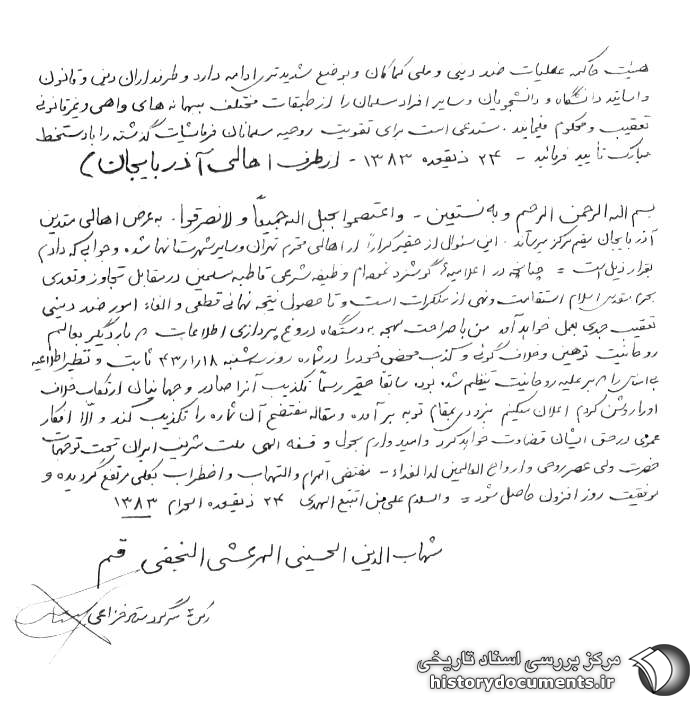 هیئت حاکمه عملیات ضد دینی و ملی کماکان و بوضع شدیدتری ادامه دارد و طرفداران دین و قانون
و اساتید دانشگاه و دانشجویان و سایر افراد مسلمان را از طبقات مختلف ببهانه های واهی و غیرقانونی
تعقیب و محکوم مینمایند. مستدعی است برای تقویت روحیه مسلمانان فرمایشات گذشته را با دستخط
مبارک تأیید فرمائید - ۲۴ ذیقعده ۱۳۸۳ - از طرف اهالی آذربایجان)
بسم الله الرحمن الرحیم و به نستعین - و اعتصموا بحبل الله جمیعاً و لا تفرقوا. به عرض اهالی متدین
آذربایجان مقیم مرکز میرساند. این سئوال از حقیر کراراً از اهالی محترم تهران و سایر شهرستانها شده و جوابی که دادم
بقرار ذیل است = چنانچه در اعلامیه گوشزد نموده‌ام وظیفه شرعی قاطبه مسلمین در مقابل تجاوز و تعدی
بحریم مقدس اسلام استقامت و نهی از منکرات است و تا حصول نتیجه نهائی قطعی و الغاء امور ضد دینی
تعقیب جدی بعمل خواهد آمد من با صراحت لهجه به دستگاه دروغ پردازی اطلاعات که بار دیگر بعالم
روحانیت توهین و خلاف گوئی و کذب محض خود را در شماره روز سه‌شنبه ۴۳/۱/۱۸ ثابت و تنظیر اطلاعیه
بی‌اساسی را که بر علیه روحانیت تنظیم شده بود سابقا حقیر رسماً تکذیب آنرا صادر و جهانیان ارتکاب خلاف
او را روشن کردم اعلان میکنم بزودی بمقام توبه بر آمده و مقاله مفتضح آن شماره را تکذیب کند و الّا افکار
عمومی در حق ایشان قضاوت خواهد کرد و امیدوارم بحول و قوه الهی ملت شریف ایران تحت توجهات
حضرت ولی عصر روحی و ارواح العالمین له الفداء - مقتضی آلام و التهاب و اضطراب بکلی مرتفع گردیده و
موفقیت روز افزون حاصل شود = والسلام علی من اتبع الهدی ۲۴ ذیقعده الحرام ۱۳۸۳
شهاب الدین الحسینی المرعشی النجفی قم
رکن ۲ سرگرد ستاد خزاعی
مرکز بررسی اسناد تاریخی
historydocuments.ir